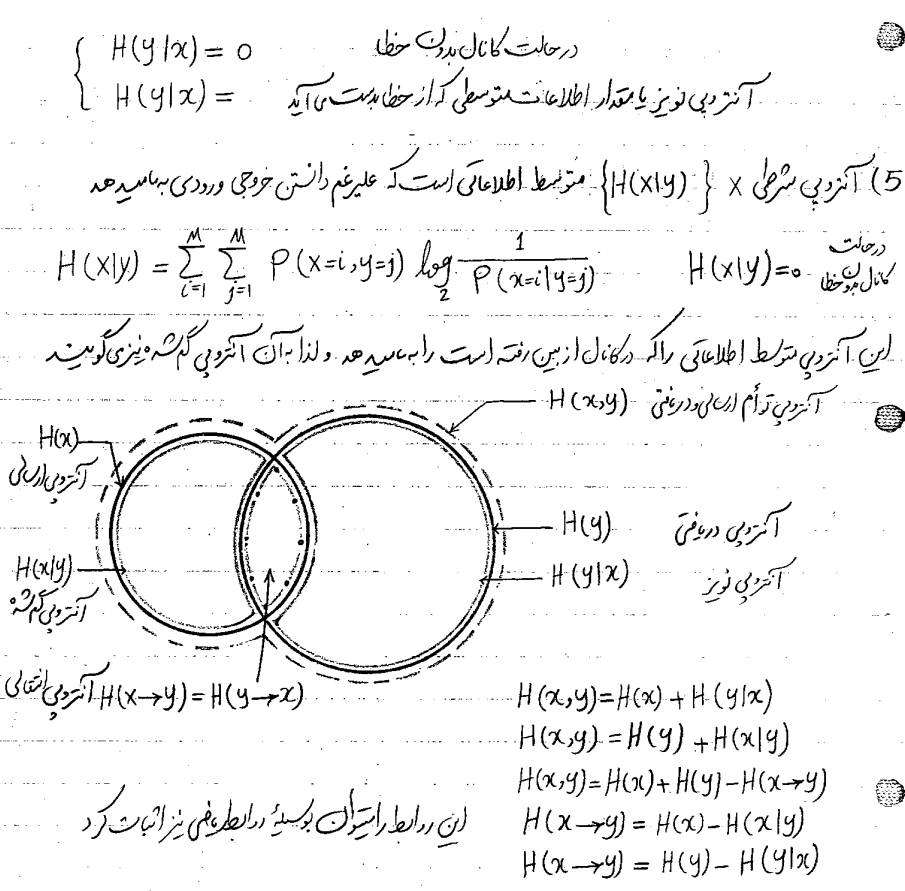 H(y|x) = 0 درحالت کانال بدون خطا
H(y|x) = آنتروپی نویز یا مقدار اطلاعات متوسطی که از خطا بدست می آید
5) آنتروپی شرطی x {H(x|y)} متوسط اطلاعاتی است که علیرغم دانستن خروجی ورودی به ما میدهد
H(x|y) = \sum_{i=1}^{M} \sum_{j=1}^{M} P(x=i,y=j) log_2 \frac{1}{P(x=i|y=j)} H(x|y)=0 درحالت کانال بدون خطا
این آنتروپی متوسط اطلاعاتی راکه درکانال از بین رفته است را به ما میدهد و لذا به آن آنتروپی گم شده نیز می گویند
H(x,y) آنتروپی توأم ارسالی و دریافتی
H(x)
آنتروپی ارسالی
H(y) آنتروپی دریافتی
H(x|y)
آنتروپی گم شده
H(y|x) آنتروپی نویز
H(x→y) = H(y→x) آنتروپی انتقالی
H(x,y)=H(x) + H(y|x)
H(x,y) = H(y) + H(x|y)
H(x,y)=H(x) + H(y) – H(x→y)
این روابط را میتوان بوسیلهٔ روابط ریاضی نیز اثبات کرد
H(x→y) = H(x) – H(x|y)
H(x→y) = H(y) – H(y|x)